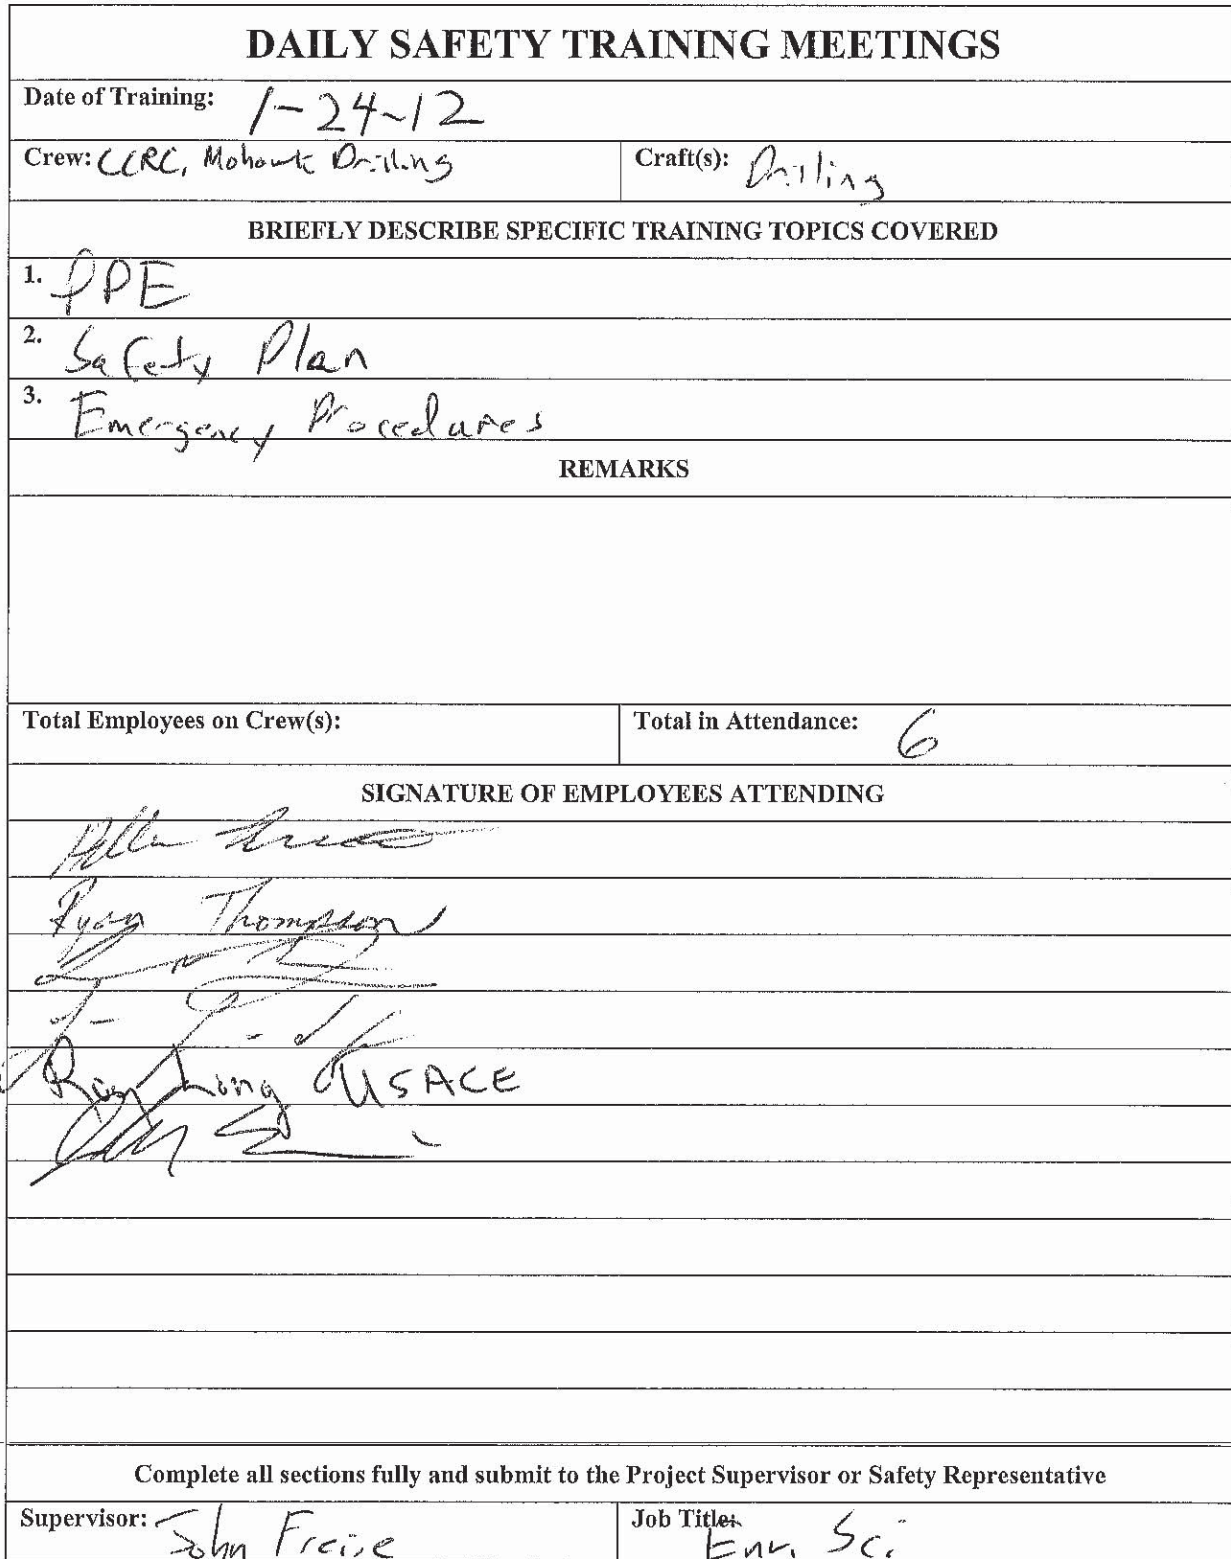 DAILY SAFETY TRAINING MEETINGS
Date of Training: 1-24-12
Crew: CCRC, Mohawk Drilling Craft(s): Drilling
BRIEFLY DESCRIBE SPECIFIC TRAINING TOPICS COVERED
1. PPE
2. Safety Plan
3. Emergency Procedures
REMARKS
Total Employees on Crew(s): Total in Attendance: 6
SIGNATURE OF EMPLOYEES ATTENDING
Ryan Thompson
Long USACE
Complete all sections fully and submit to the Project Supervisor or Safety Representative
Supervisor: John Freise Job Title: Env. Sci